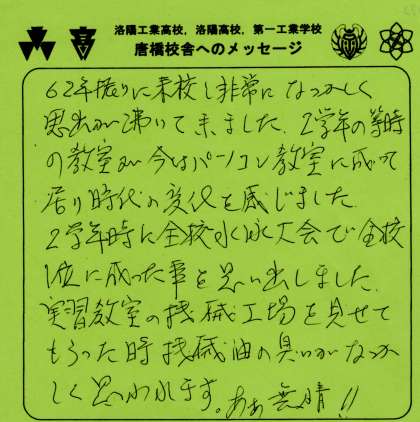 洛陽工業高校，洛陽高校，第一工業学校
唐橋校舎へのメッセージ
62年振りに来校し非常になつかしく
思出が沸いて来ました。2学年の等時
の教室が今はパーソコン教室に成って
居り時代の変化を感じました。
2学年時に全校水泳大会で全校
1位に成った事を思い出しました。
実習教室の機械工場を見せて
もらった時機械油の臭いがなつか
しく思われます。ああ無晴!!